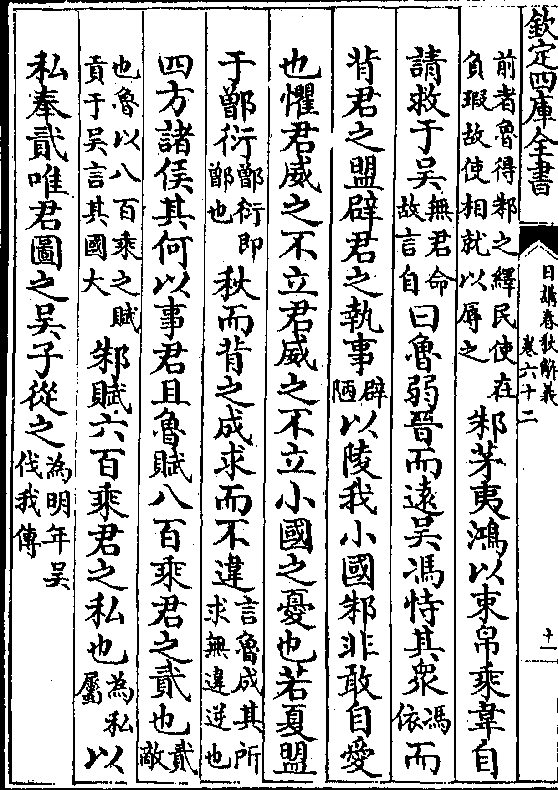 欽定四庫全書
日講春秋解義
卷六十二
十一
前者魯得邾之繹民使在負瑕故使相就以辱之邾茅夷鴻以束帛乘韋自
請救于吳無君命故言自曰魯弱晉而遠吳馮恃其衆馮依而
背君之盟辟君之執事辟陋以陵我小國邾非敢自愛
也懼君威之不立君威之不立小國之憂也若夏盟
于鄫衍鄫衍即鄫也秋而背之成求而不違言魯成其所求無違逆也
四方諸侯其何以事君且魯賦八百乘君之貳也貳敵
也魯以八百乘之賦貢于吳言其國大邾賦六百乘君之私也為私屬以
私奉貳唯君圖之吳子從之為明年吳伐我傳